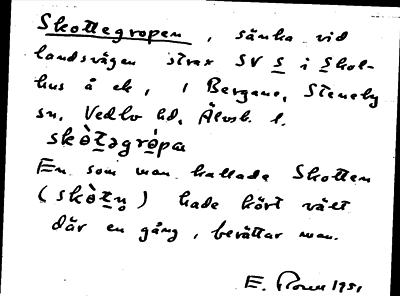 Skottegropen, sänka vid
landsvägen strax SV S i Skol-
hus å ek, i Bergane, Steneby
sn. Vedbo hd, Älvsb. l.
skὸt̲əgrὸpa
En som man kallade Skotten
(skὸt̲n̥) hade kört vält
där en gång, berättar man.
E. 1951